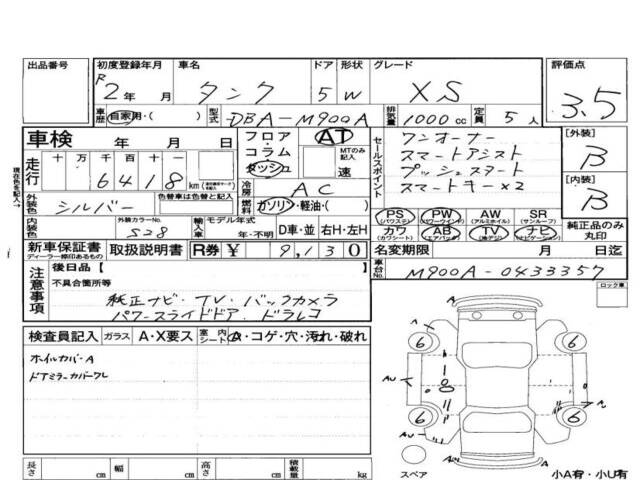 出品番号 初度登録年月 車名 ドア 形状 グレード 評価点
R2年 月 タンク 5 W XS 3.5
車歴 自家用・( ) 型式 DBA-M900A 排気量 1000cc 定員 5人
車検 年 月 日 フロア・コラム・ダッシュ AT MTのみ記入 速
走行 十 万 千 百 十 一
6418 km
現在色を記入→
外装色 シルバー 色替車は色替と記入
冷房 AC
燃料 ガソリン・軽油・( )
セールスポイント
ワンオーナー
スマートアシスト
プッシュスタート
スマートキー×2
[外装] B
[内装] B
純正品のみ丸印
内装色 外装カラーNo. S28 輸入車 モデル年式 年・不明 D車・並 右H・左H
PS (パワステ) PW (パワーウインド) AW (アルミホイル) SR (サンルーフ)
カワ (カワシート) AB (エアバック) TV (地デジ) ナビ (ナビゲーション)
新車保証書 ディーラー捺印あるもの 取扱説明書 R券 ¥ 9,130
名変期限 月 日迄
車台No. M900A-0433357
注意事項 後日品【 】
不具合箇所等
純正ナビ・TV・バックカメラ
パワースライドドア、ドラレコ
ロック車
検査員記入 ガラス A・X要ス 室内シート A・コゲ・穴・汚れ・破れ
ホイルカバーA
ドアミラーカバーワレ
A
6 6
AU A
6 6
AU
A
スペア 小A有・小U有
長さ cm 幅 cm 高さ cm 積載量 kg